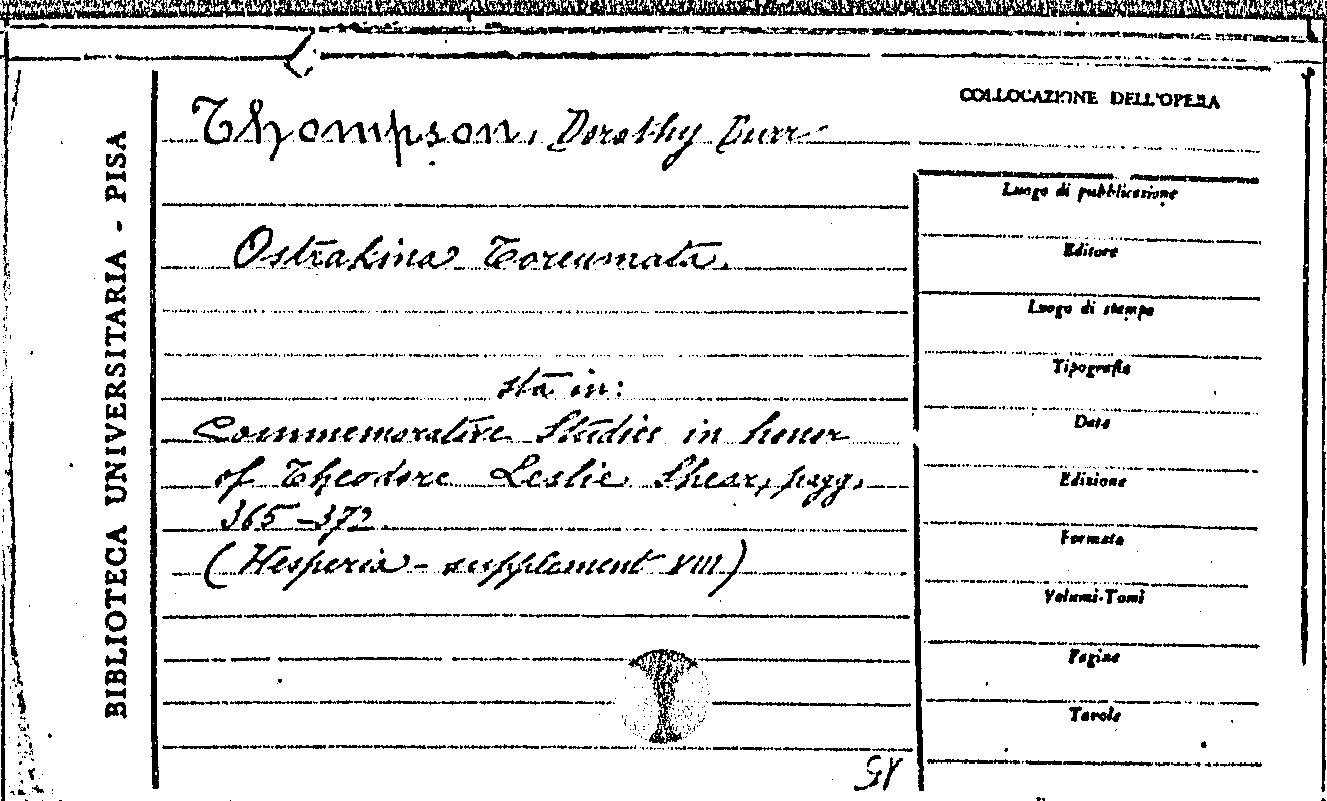 BIBLIOTECA UNIVERSITARIA - PISA
Thompson, Dorothy Burr
Ostrakina Toreumata.
sta in:
Commemorative Studies in honor
of Theodore Leslie Shear, pagg.
365-372.
(Hesperia - supplement VIII)
COLLOCAZIONE DELL'OPERA
Luogo di pubblicazione
Editore
Luogo di stampa
Tipografia
Data
Edizione
Formato
Volumi-Tomi
Pagine
Tavole